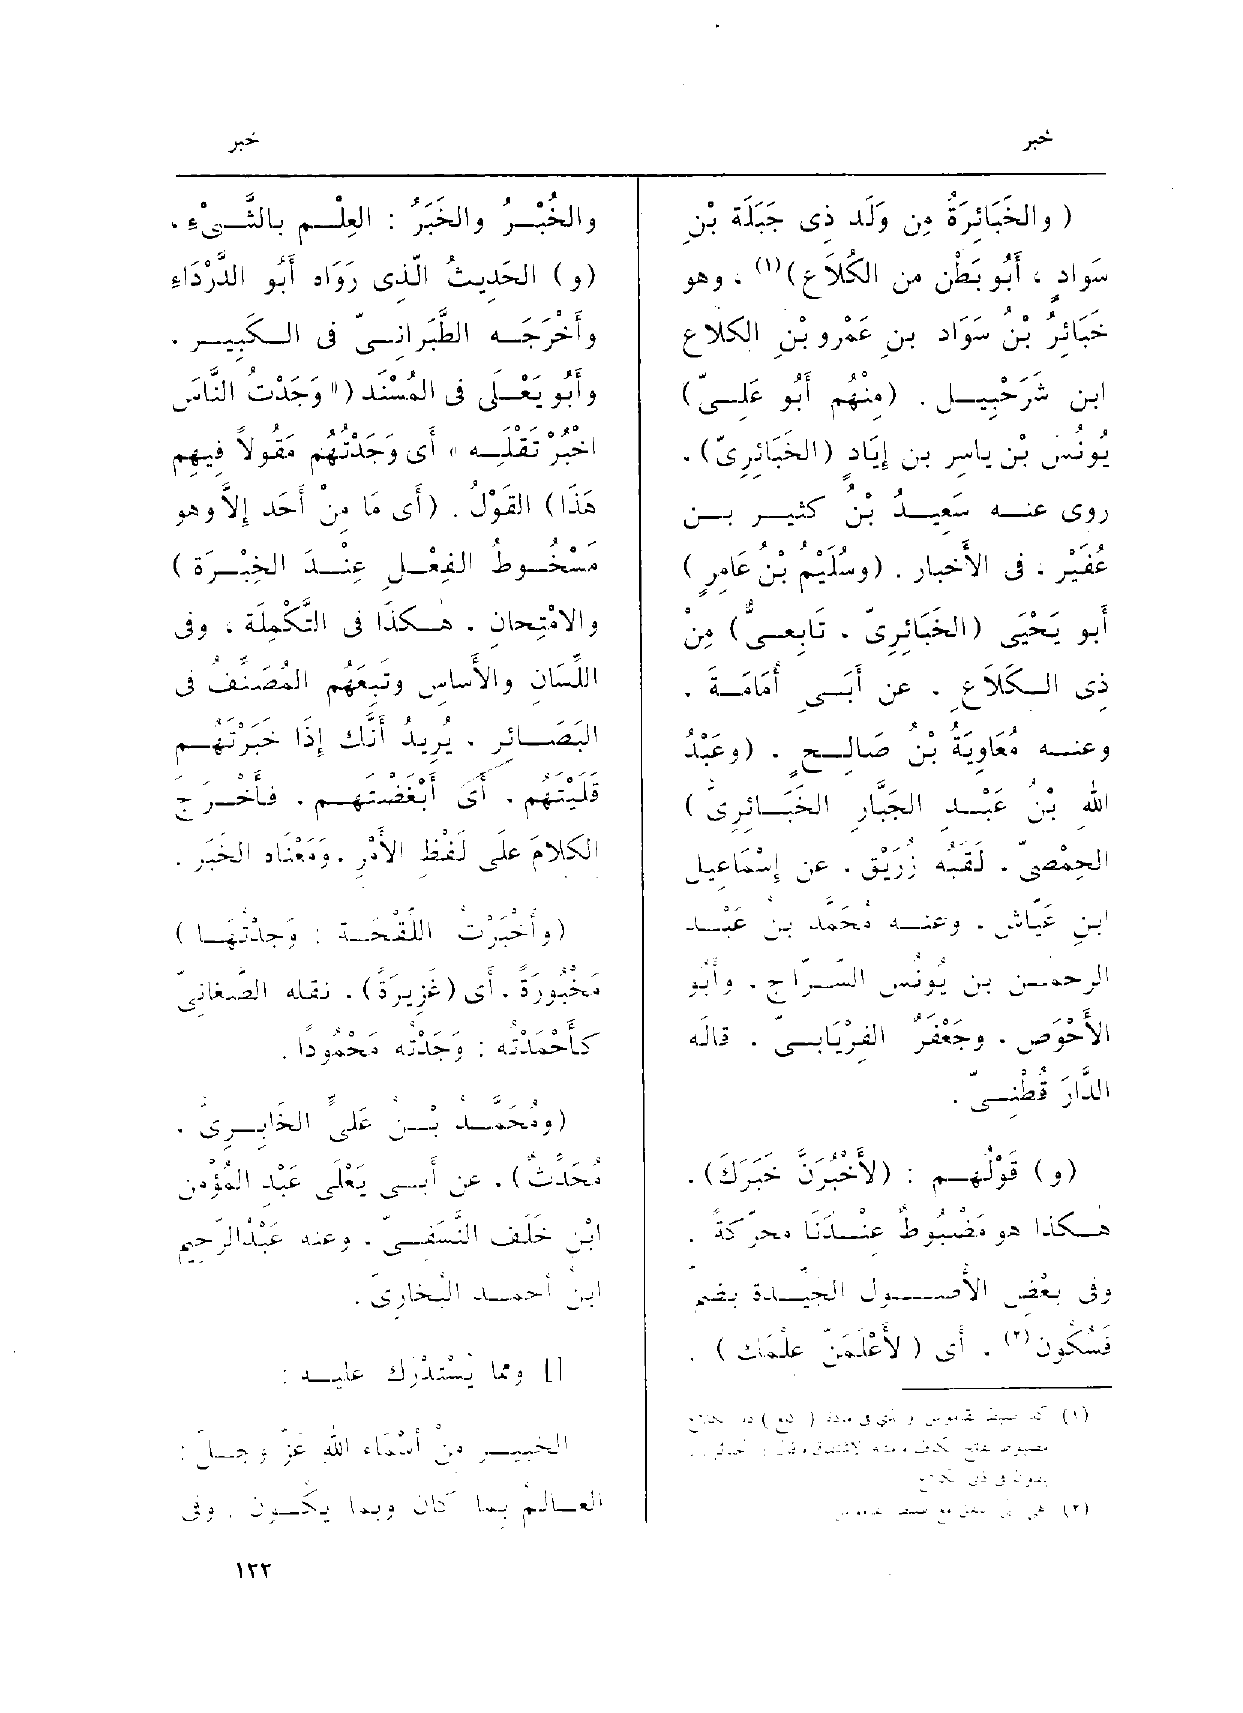 خبر
خبر
( والخَبَائِرَةُ مِن وَلَد ذِى جَبَلَة بْنِ
سَوادٍ ، أَبُو بَطْن من الكَلاَع)(١) ، وهو
خَبَائِرُ بْنُ سَوَاد بنِ عَمْرو بْنِ الكلاع
ابن شُرَحْبِيـل . (مِنْهُم أَبُو عَلِـىّ)
يُونُس بْن ياسِرِ بن إِيَاد (الخَبَائِرِىّ) .
روى عنـه سَعِيـدُ بْنُ كثيـر بـن
عُفَيْر ، فى الأَخبار . (وسُلَيْمُ بْنُ عَامِرٍ )
أَبو يَحْيَى (الخَبَائِرِىّ ، تابَعِىٌّ) مِنْ
ذى الـكَلاَعِ . عن أَبِـى أُمَامَـة .
وعنـه مُعَاوِيَةُ بْنُ صَالِـحٍ . (وعَبْدُ
اللهِ بْنُ عَبْـد الجَبَّارِ الخَبَـائِرِىُّ )
الحِمْصِىّ . لَقَبُه زُرَيْق . عن إِسْمَاعِيلَ
ابن عَيّاش . وعنـه مُحَمَّد بنُ عَبْـد
الرحمـن بن يُونُس السّـراج . وأَبُو
الأَحْوَص . وجَعْفَرُ الفِرْيَابِـىّ . قالَه
الدَّارَ قُطْنِـىّ .
(و) قَوْلُهـم : (لأَخْبُرَنَّ خَبَرَكَ) .
هـكذا هو مَضْبُوطٌ عِنْـدَنَا محرّكةً .
وفى بعْض الأُصـول الجَيِّـدة بضم
فَسُكُون(٢) . أَى ( لأَعْلَمَنّ عِلْمَك ) .
والخُبْـرُ والخَبَرُ : العِلْـم بالشَّـىْءِ .
(و) الحَدِيثُ الّذِى رَوَاه أَبُو الدَّرْدَاءِ
وأَخْرَجَـه الطَّبَرانِـىّ فى الـكَبِيـر .
وأَبُو يَعْـلَى فى المُسْنَد (« وَجَدْتُ النَّاسَ
اخْبُرْ تَقْلِـه » أَى وَجَدْتُهُم مَقُولاً فِيهِم
هَذَا) القَوْلُ . (أَى مَا مِنْ أَحَد إِلاَّ وهو
مَسْخُـوط الفِعْـلِ عِنْـدَ الخِبْـرَة )
والامْتِحان . هـكَذَا فى التَّكْمِلَة ، وفى
اللِّسَان والأَساس وتَبِعَهُم المُصَنِّفُ فى
البَصَـائر . يُرِيدُ أَنَّك إِذَا خَبَرْتَهُـم
قَلَيْتَهُم . أَى أَبْغَضْتَهـم . فـأَخْـرَجَ
الكلامَ على لَفْظِ الأَمْرِ . ومَعْنَاه الخَبَر .
(وأَخْبَرْت اللِّقْحَـة : وَجَدْتُهَـا )
مَخْبُورَةً . أَى (غَزِيرَةً) . نقله الصّغانِىّ
كـأَحْمَدْتُه : وَجَدْتُه مَحْمُودًا .
(ومُحَمَّـد بْـنُ عَلِىٍّ الخَابِـرِىُّ .
مُحَدِّثٌ) . عن أَبـى يَعْلَى عَبْد المُؤْمن
ابْنِ خَلَف النَّسَفِـىّ . وعنه عَبْدُالرَّحِيم
ابنُ أَحمـد البُخَارِىّ .
[] ومّا يُسْتَدْرَك عليـه :
الخَبِيـر مِنْ أَسْمَاء اللهِ عَزّ وجـلّ :
العـالِمُ بِما كَان وبما يكُـون . وفى
١٢٢